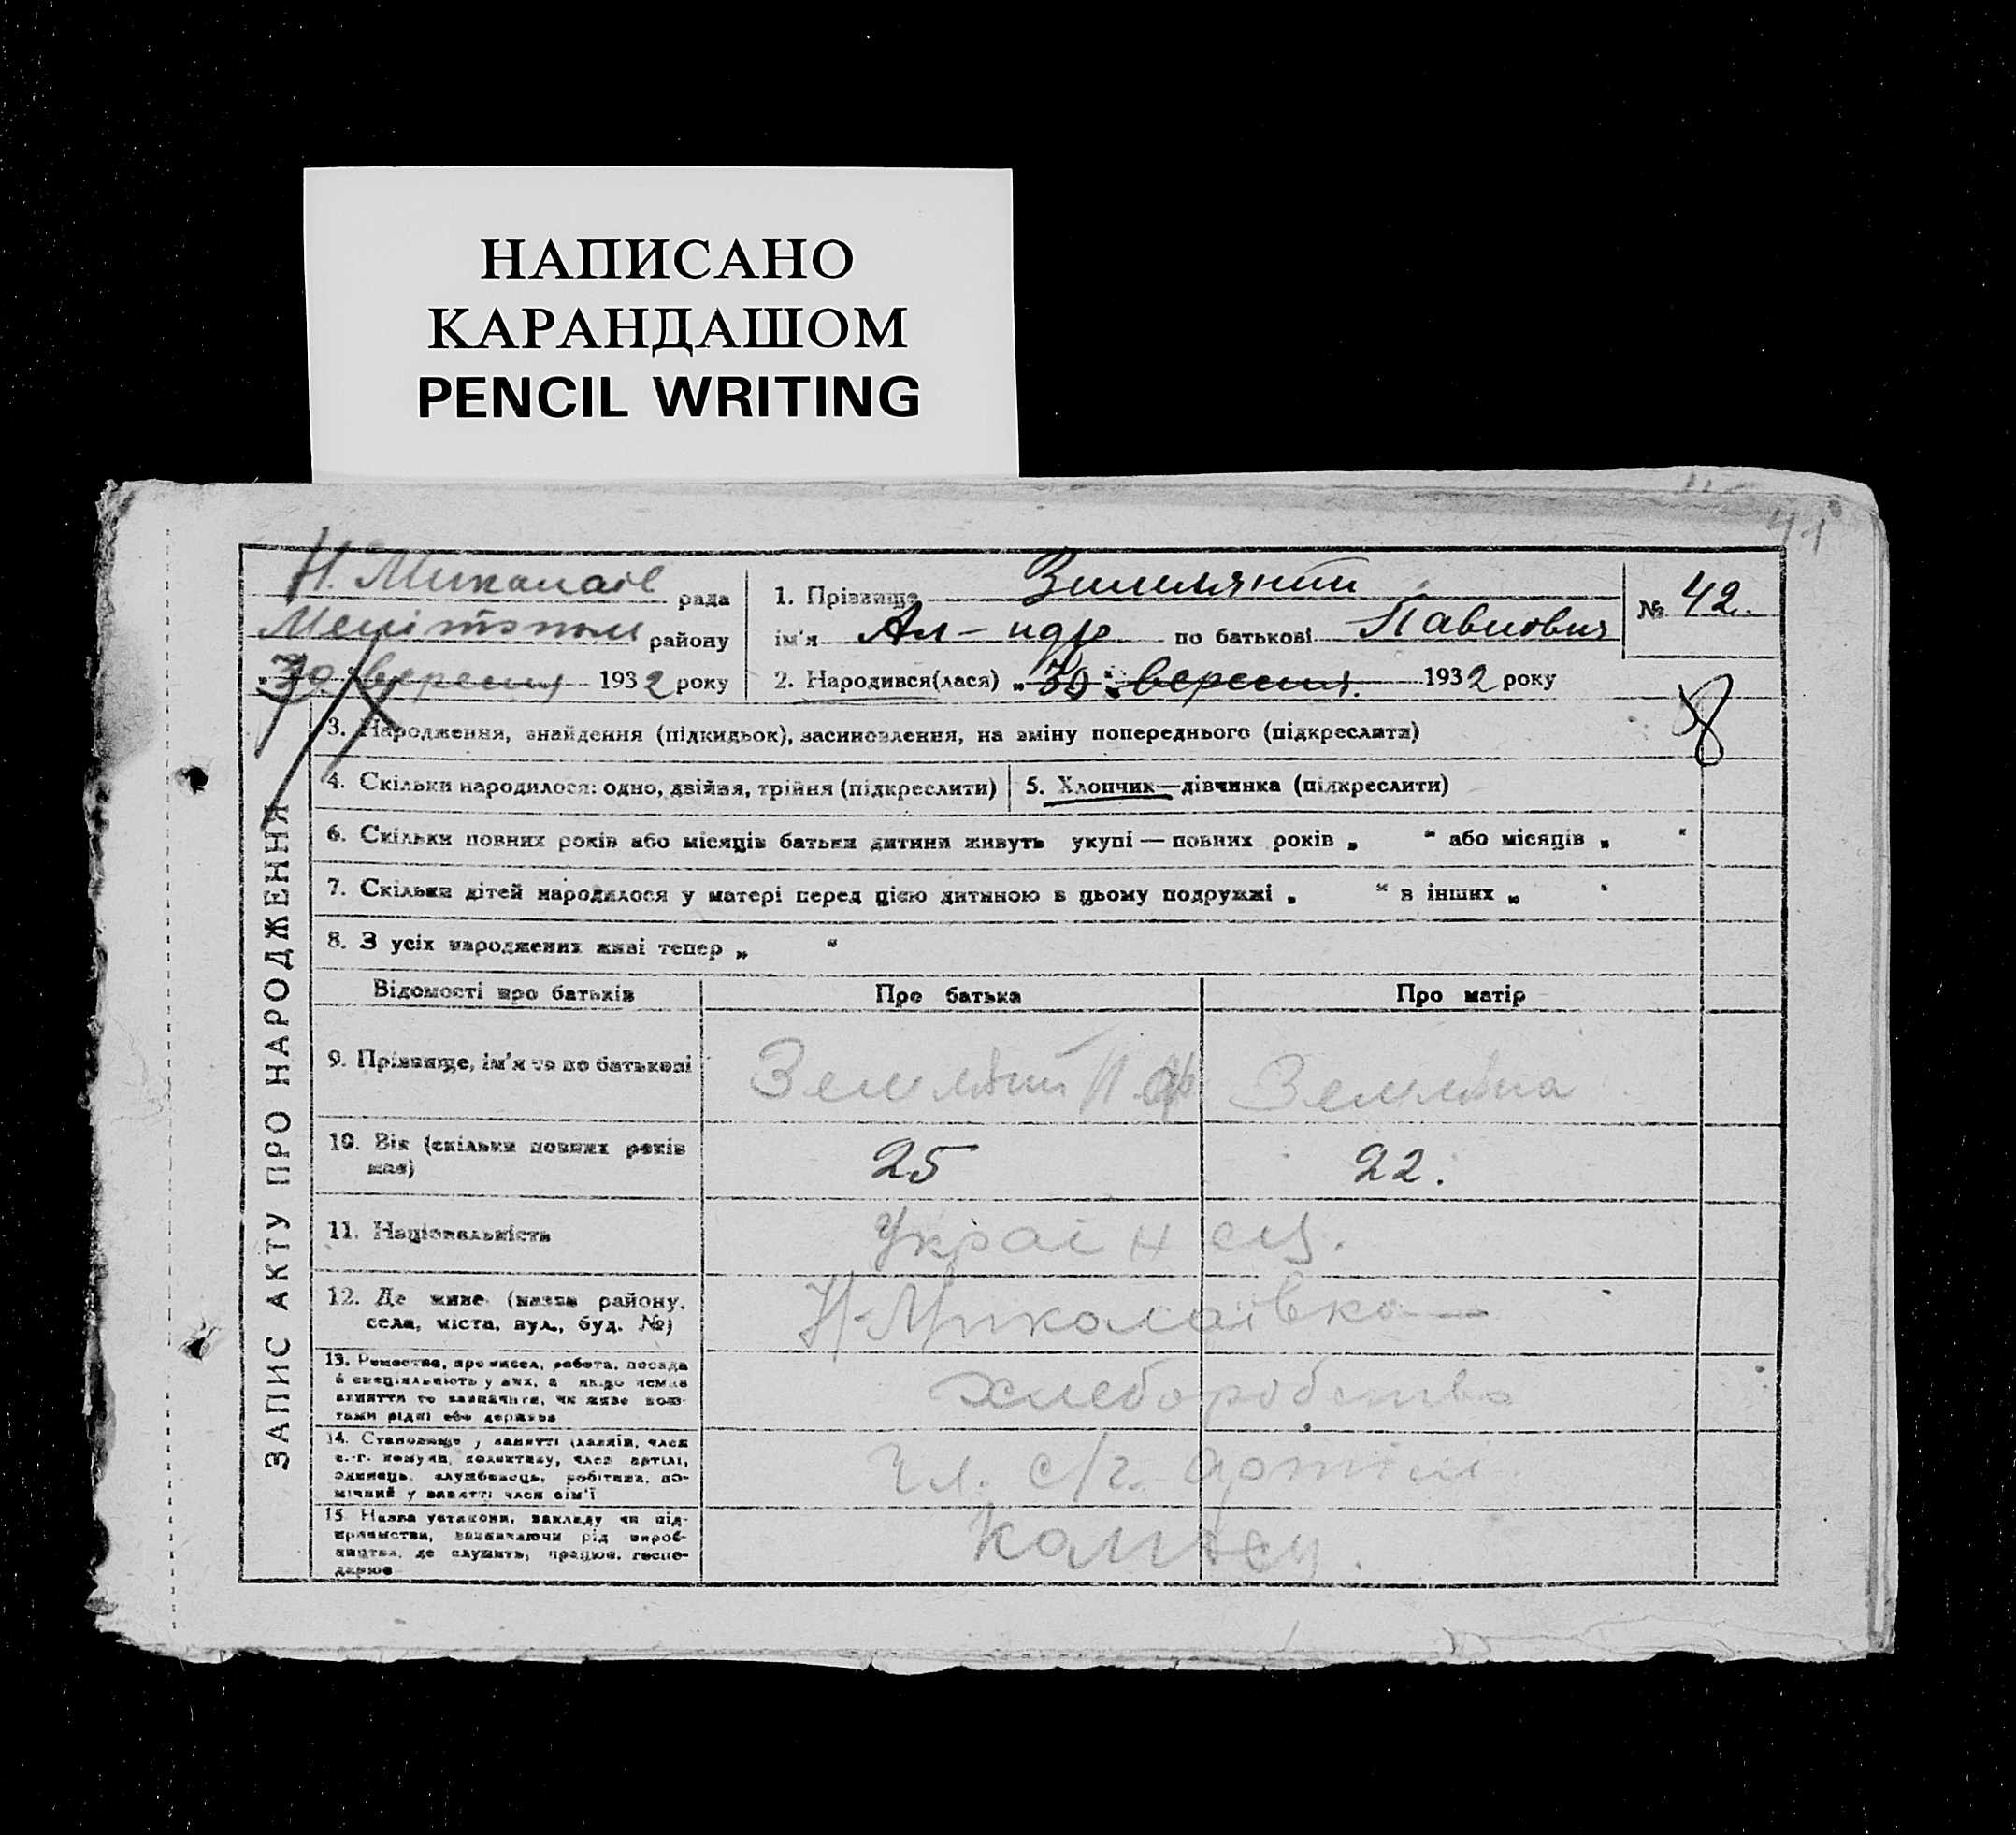 НАПИСАНО
КАРАНДАШОМ
PENCIL WRITING
41
Н. Миколаїв рада
Мелітополь району
"30" вересня 1932 року
1. Прізвище Зимляний
ім'я Ал-ндр по батькові Павлович
2. Народився(лася) "30" вересня 1932 року
№ 42.
3. Народження, знайдення (підкидьок), засиновлення, на зміну попереднього (підкреслити)
4. Скільки народилося: одно, двійня, трійня (підкреслити)
5. Хлопчик—дівчинка (підкреслити)
6. Скільки повних років або місяців батьки дитини живуть укупі — повних років „ “ або місяців „ “
7. Скільки дітей народилося у матері перед цією дитиною в цьому подружжі „ “ в інших „ “
8. З усіх народжених живі тепер „ “
ЗАПИС АКТУ ПРО НАРОДЖЕННЯ
Відомості про батьків
Про батька
Про матір
9. Прізвище, ім'я та по батькові
Земляний П.
Земляна
10. Вік (скільки повних років
має)
25
22.
11. Національність
Українец.
12. Де живе (назва району,
села, міста, вул., буд. №)
Н-Миколаівка
13. Ремество, промисел, робота, посада
й спеціяльність у них, а якщо немає
заняття то зазначити, чи живе кош-
тами рідні або держави
хлеборобство
14. Становище у занятті (хазяїн, член
с.-г. комуни, колективу, член артілі,
одинець, службовець, робітник, по-
мічний у занятті член сім'ї
Чл. с/г. артіли
15. Назва установи, закладу чи під-
приємства, зазначаючи рід вироб-
ництва, де служить, працює, госпо-
дарює